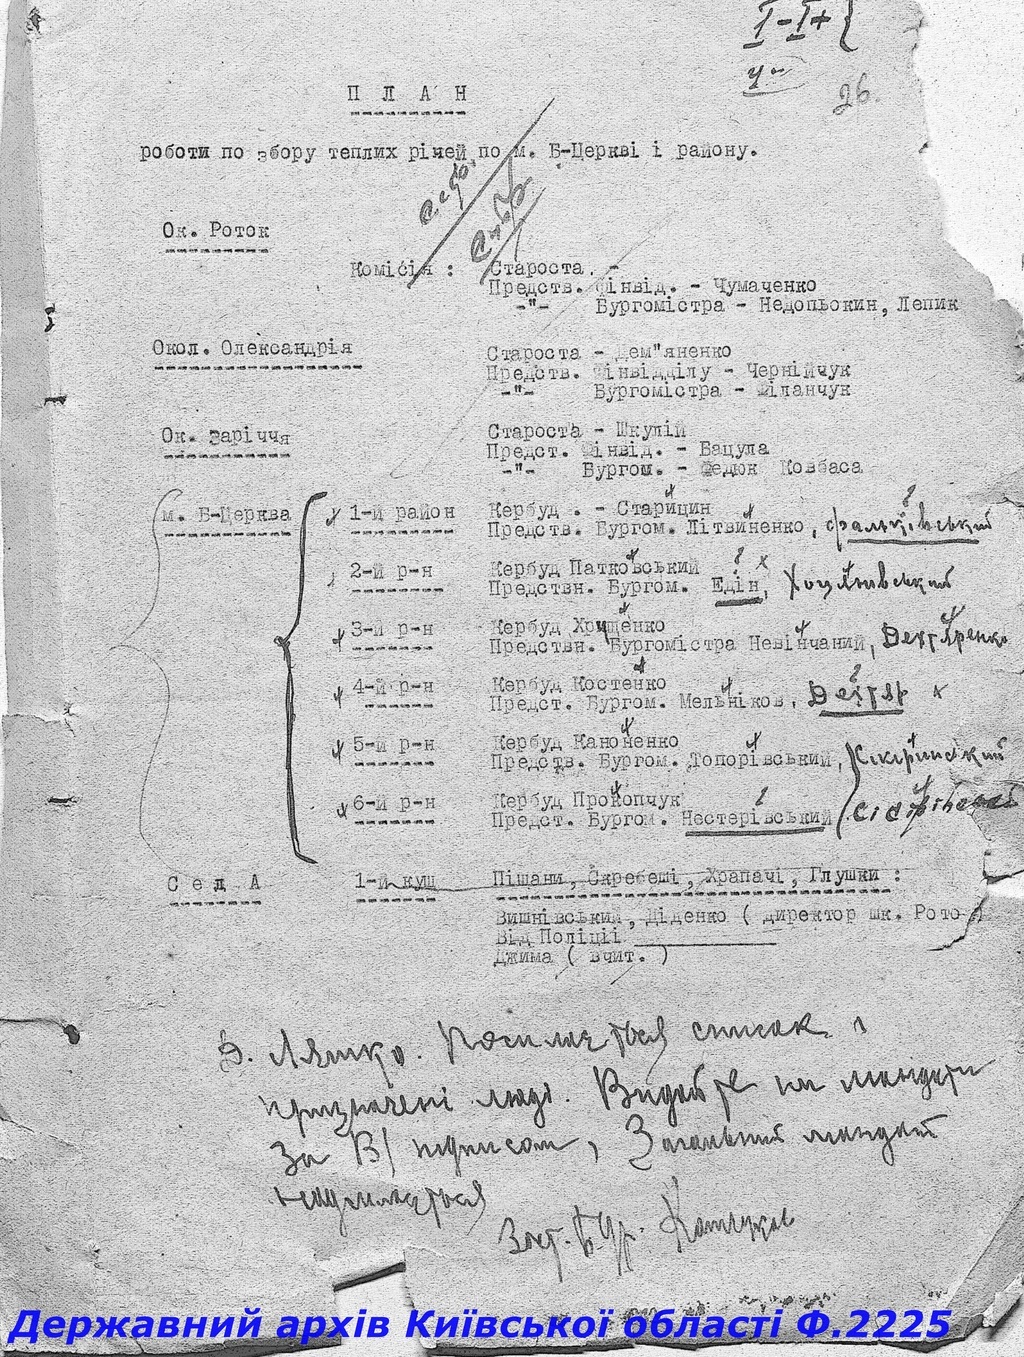 I-I+
26.
П Л А Н
роботи по збору теплих річей по м. Б-Церкві і району.
Ок. Роток
Комісія : Староста. -
Предств. Фінвід. - Чумаченко
-"- Бургомістра - Недопьокин, Лепик
Окол. Олександрія
Староста - Дем"яненко
Предств. Фінвідділу - Чернійчук
-"- Бургомістра - Філанчук
Ок. Заріччя
Староста - Шкулій
Предст. Фінвід. - Вацула
-"- Бургом. - Федюк Ковбаса
м. Б-Церква 1-й район Кербуд . - Старицин
Предств. Бургом. Літвиненко, Фальківський
2-й р-н Кербуд Патковський
Предствн. Бургом. Едін,
3-й р-н Кербуд Хрищенко
Предствн. Бургомістра Невінчаний, Дехтяренко
4-й р-н Кербуд Костенко
Предст. Бургом. Мельніков, Дехтяр
5-й р-н Кербуд Каноненко
Предств. Бургом. Топорівський,
6-й р-н Кербуд Прокопчук
Предст. Бургом. Нестерівський
С е л А 1-й кущ Піщани, Скребеші, Храпачі, Глушки :
Вишнівський, Діденко ( директор шк. Рото-)
Від Поліції
Джима ( вчит. )
Д. Ляшко. Посилається список і
призначені люді. Видайте їм мандати
За В/ підписом, Загальний мандат
надсилається
Заст. Б.
Державний архів Київської області Ф.2225